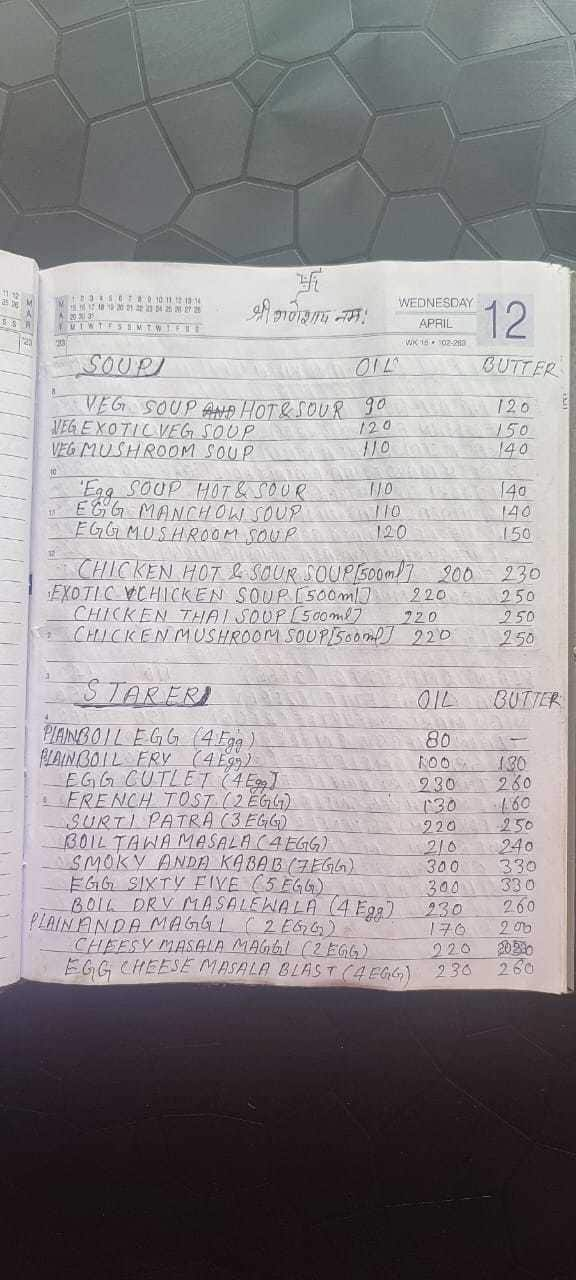 श्री गणेशाय नमः
WEDNESDAY
APRIL 12
WK 15 • 102-263
SOUP OIL BUTTER
VEG SOUP HOT & SOUR 90 120
VEG EXOTIC VEG SOUP 120 150
VEG MUSHROOM SOUP 110 140
Egg SOUP HOT & SOUR 110 140
EGG MANCHOW SOUP 110 140
EGG MUSHROOM SOUP 120 150
CHICKEN HOT & SOUR SOUP [500ml] 200 230
EXOTIC CHICKEN SOUP [500ml] 220 250
CHICKEN THAI SOUP [500ml] 220 250
CHICKEN MUSHROOM SOUP [500ml] 220 250
STARER OIL BUTTER
PLAIN BOIL EGG (4 Egg) 80 —
PLAIN BOIL FRY (4 Egg) 100 130
EGG CUTLET (4 Egg) 230 260
FRENCH TOST (2 EGG) 130 160
SURTI PATRA (3 EGG) 220 250
BOIL TAWA MASALA (4 EGG) 210 240
SMOKY ANDA KABAB (7 EGG) 300 330
EGG SIXTY FIVE (5 EGG) 300 330
BOIL DRY MASALEWALA (4 Egg) 230 260
PLAIN ANDA MAGGI (2 EGG) 170 200
CHEESY MASALA MAGGI (2 EGG) 220
EGG CHEESE MASALA BLAST (4 EGG) 230 260